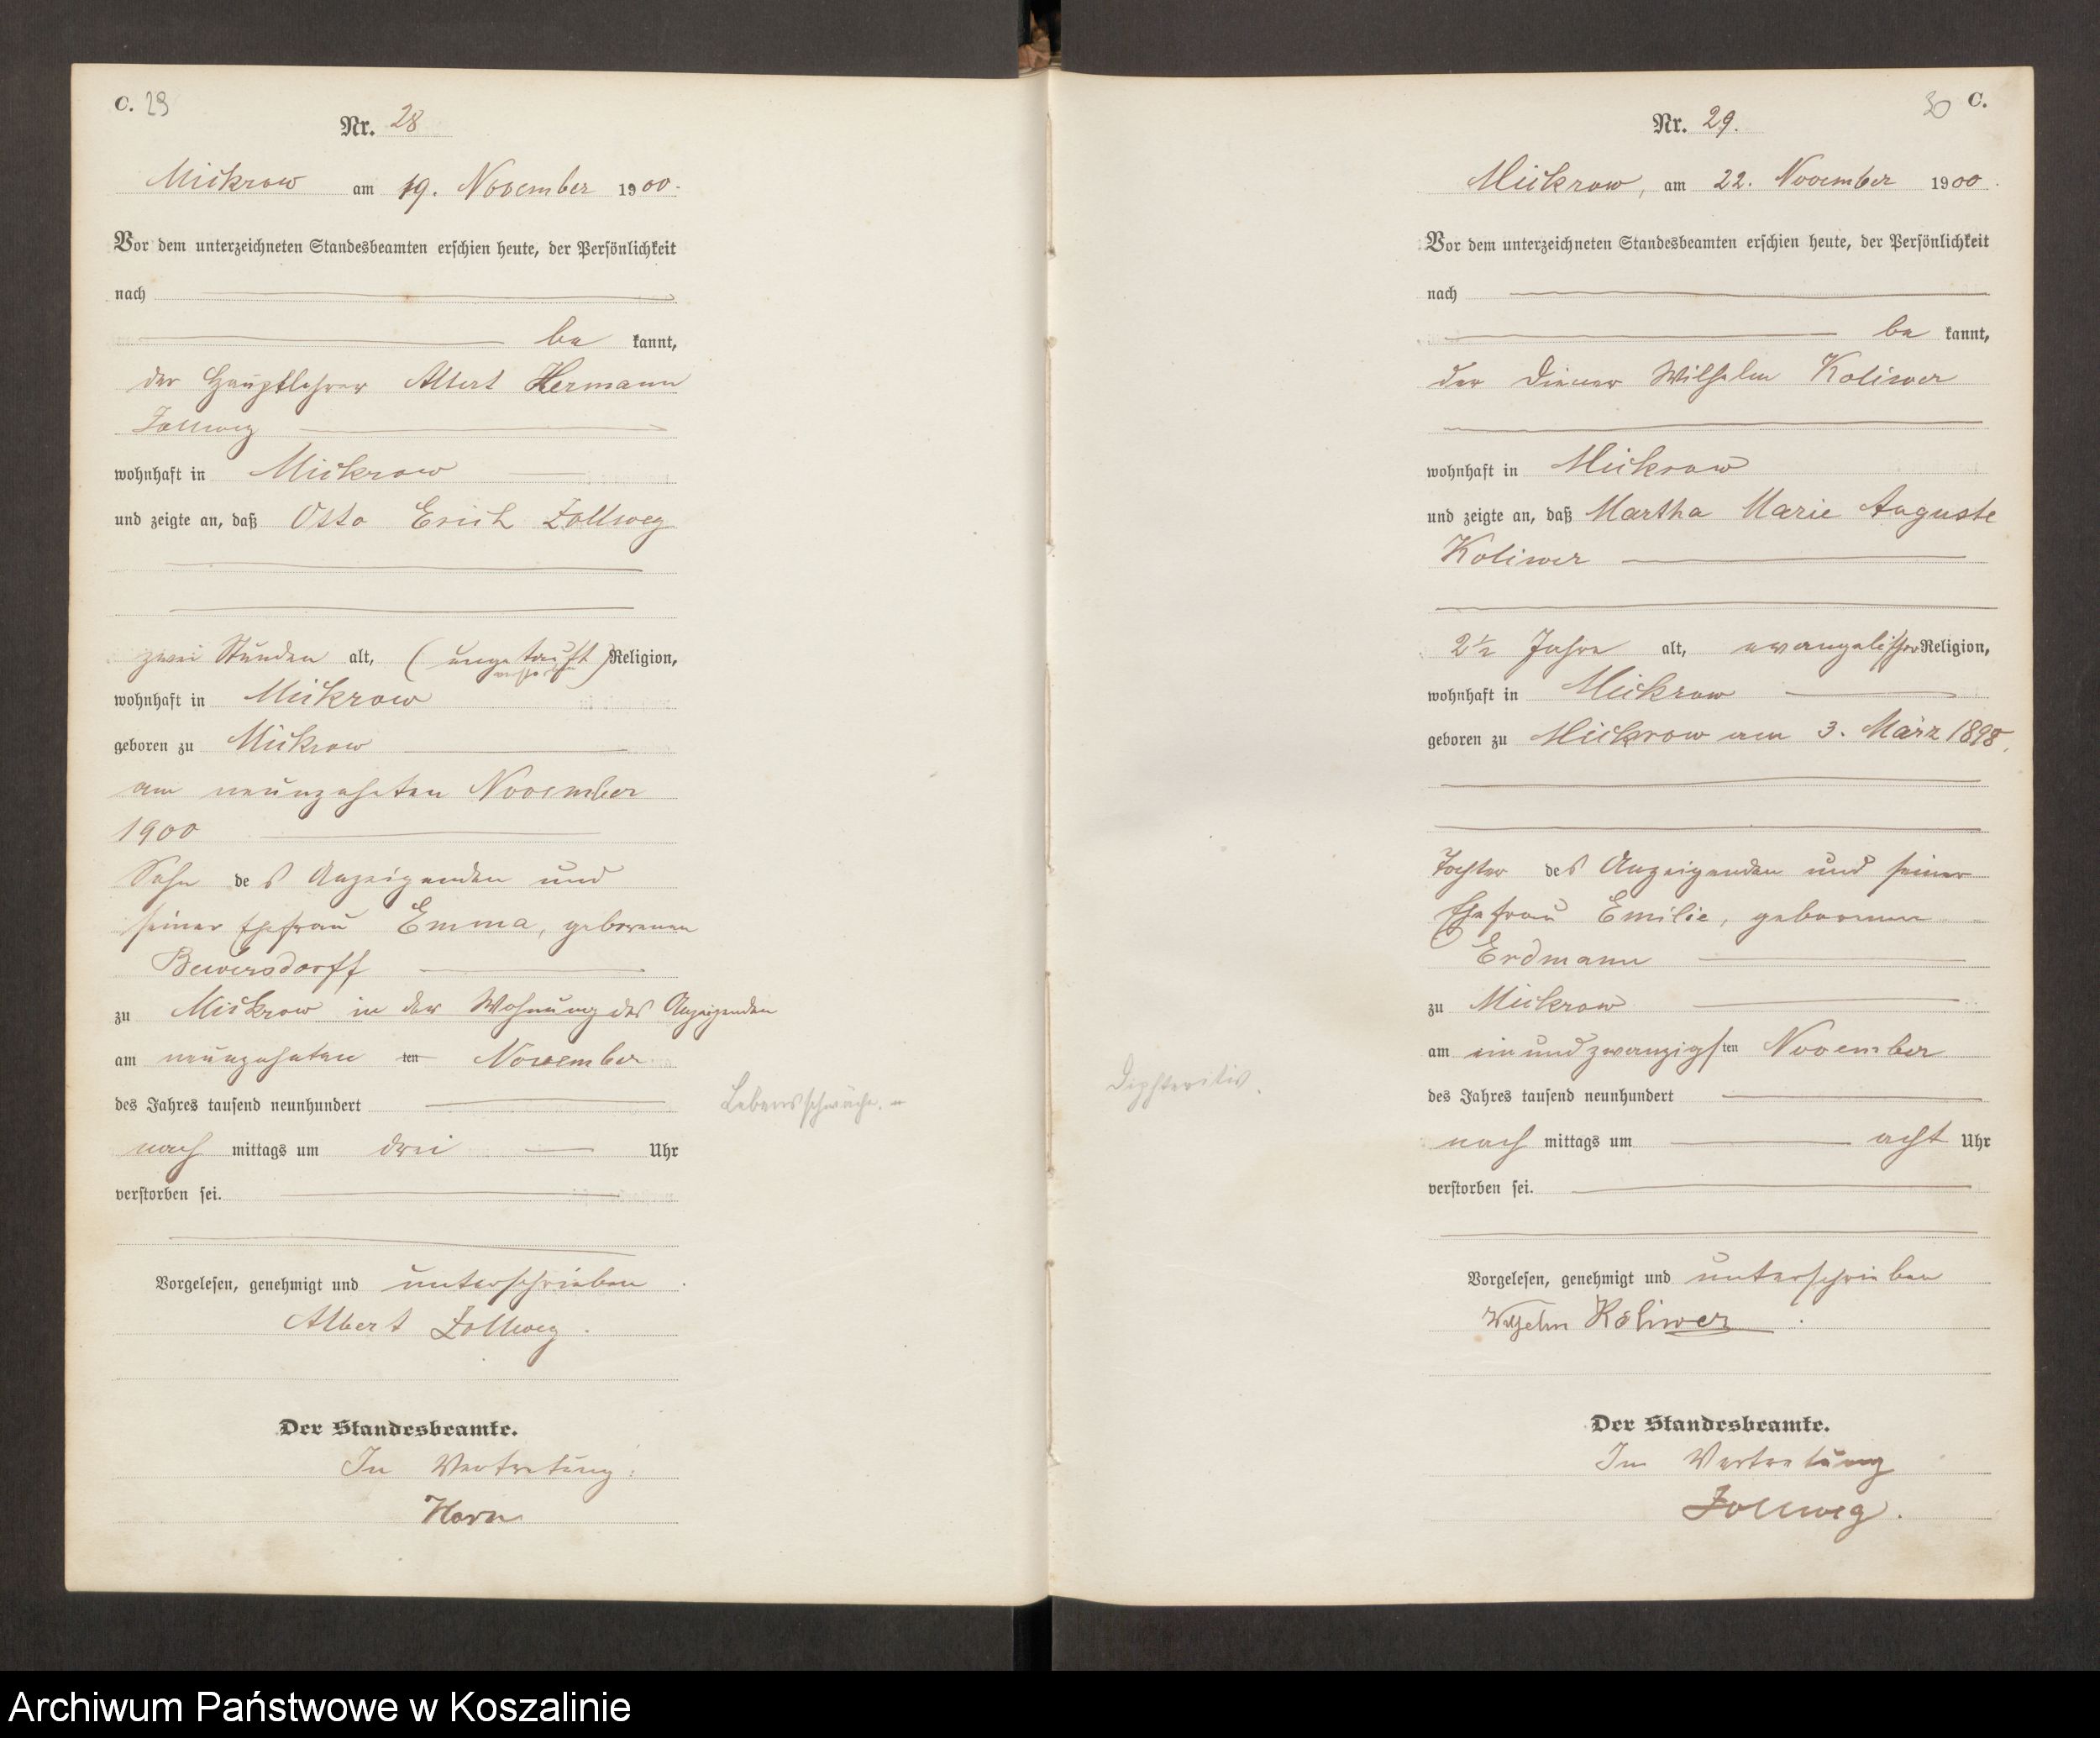 C. 29
Nr. 28
Mickrow am 19. November 1900.
Vor dem unterzeichneten Standesbeamten erschien heute, der Persönlichkeit
nach
be kannt,
der Hauptlehrer Albert Hermann
Zollweg
wohnhaft in Mickrow
und zeigte an, daß Otto Erich Zollweg
zwei Stunden alt, (ungetauft) Religion,
wohnhaft in Mickrow
geboren zu Mickrow
am neunzehnten November
1900
Sohn des Anzeigenden und
seiner Ehefrau Emma, geborenen
Bewersdorff
zu Mickrow in der Wohnung des Anzeigenden
am neunzehnten ten November
des Jahres tausend neunhundert
nach mittags um drei Uhr
verstorben sei.
Lebensschwäche.
Vorgelesen, genehmigt und unterschrieben
Albert Zollweg.
Der Standesbeamte.
In Vertretung:
Horn
30 C.
Nr. 29.
Mickrow, am 22. November 1900.
Vor dem unterzeichneten Standesbeamten erschien heute, der Persönlichkeit
nach
be kannt,
der Diener Wilhelm Koliwer
wohnhaft in Mickrow
und zeigte an, daß Martha Marie Auguste
Koliwer
2½ Jahre alt, evangelischer Religion,
wohnhaft in Mickrow
geboren zu Mickrow am 3. März 1898.
Tochter des Anzeigenden und seiner
Ehefrau Emilie, geborenen
Erdmann
zu Mickrow
am einundzwanzigsten November
des Jahres tausend neunhundert
nach mittags um acht Uhr
verstorben sei.
Diphteritis.
Vorgelesen, genehmigt und unterschrieben
Wilhelm Koliwer.
Der Standesbeamte.
In Vertretung
Zollweg.
Archiwum Państwowe w Koszalinie